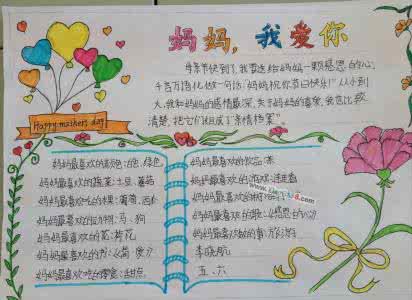 妈妈，我爱你
Happy mothers day
母亲节快到了,我要送给妈妈一颗感恩的心,
千言万语化做一句话:妈妈祝你节日快乐!从小到
大,我和妈妈的感情最深,关于妈妈的喜爱,我也比较
清楚,把它们组成了"亲情档案"。
妈妈最喜欢的颜色:白色、绿色
妈妈最喜欢的蔬菜:土豆、蕃茄
妈妈最喜欢吃的水果:葡萄、西
妈妈最喜欢的动物:马、狗
妈妈最喜欢的花:荷花
妈妈最喜欢的书:《简·爱》
妈妈最喜欢吃的零食:甜点
妈妈最喜欢的饮品:茶
妈妈最喜欢的游戏:连连看
妈妈最喜欢的
妈妈最喜欢的歌:《感恩的心》
妈妈最喜欢做的事:旅游
李晓航
五、六